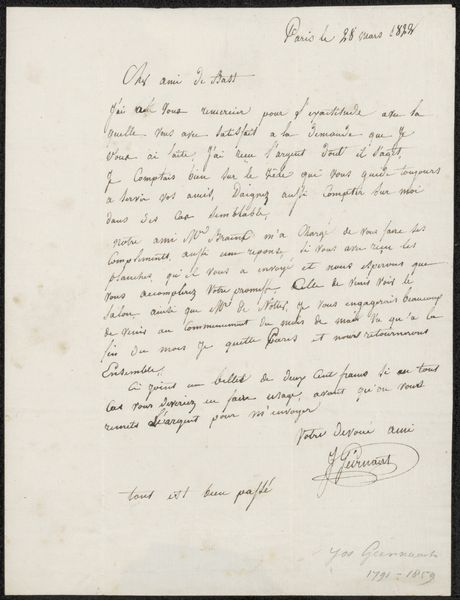 Paris le 28 mars 1822
Cher ami de Bast
J'ai à vous remercier pour l'exactitude avec la
quelle vous avez satisfait a la demande que je
vous ai faite, J'ai recu l'argent dont il s'agit,
Je Comptais bien sur le zèle qui vous guide toujours
a servir vos amis, Daignez aussi Compter sur moi
dans des Cas semblable,
notre ami Mr m'a Chargé de vous faire ses
Compliments, aussi une reponse, si vous avez reçu les
planches, qu'il vous a envoyé et nous esperons que
vous accomplirez votre promesse, Celle de venir voir le
Salon, ainsi que Mr de Notter, Je vous engagerais beaucoup
de venir au Commencement du mois de mai vu qu'a la
fin du mois Je quitte Paris et nous retournerons
Ensemble,
Ci joint un billet de deux Cent francs si en tous
Cas vous devriez en faire usage, avant qu'on vous
remets l'argent pour m'envoyer
Votre devoué ami
J Geirnaert
tous est bien passé
Jos Geirnaert
1791 - 1859